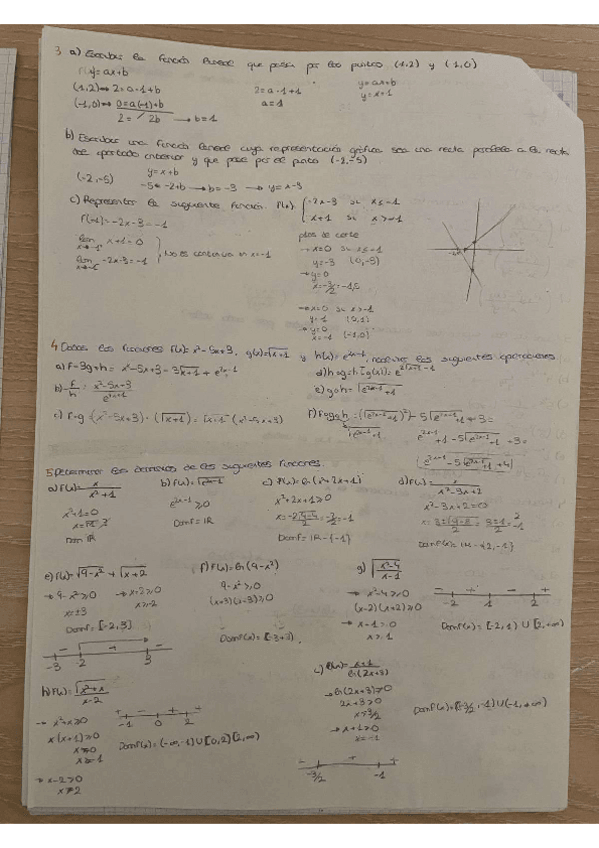 3 a) Escribir la función lineal que pasa por los puntos (1,2) y (-1,0)
f(x)=ax+b
(1,2)→ 2=a·1+b
(-1,0)→ 0=a(-1)+b
2= 2b → b=1
2=a·1+1
a=1
y=ax+b
y=x+1
b) Escribir una función lineal cuya representación gráfica sea una recta paralela a la recta
del apartado anterior y que pase por el punto (-2,-5)
(-2,-5)
y=x+b
-5=-2+b → b=-3 → y=x-3
c) Representar la siguiente función f(x) { -2x-3 si x≤-1
x+1 si x>-1
f(-1)=-2x-3=-1
lim x+1=0
x→-1
lim -2x-3=-1
x→-1
No es continua en x=-1
ptos de corte
→x=0 si x≤-1
y=-3 (0,-3)
→y=0
x=-3/2=-1,5
→x=0 si x>-1
y=1 (0,1)
→y=0
x=-1 (-1,0)
4 Dadas las funciones f(x)=x²-5x+3, g(x)=√x+1 y h(x)=e^2x-1, realizar las siguientes operaciones
a) f-3g+h= x²-5x+3-3√x+1+e^2x-1
b) f/h = x²-5x+3/e^2x-1
c) f·g=(x²-5x+3)·(√x+1)=√x+1(x²-5x+3)
d) hog=h[g(x)]=e^2√x+1-1
e) goh=√e^2x-1+1
f) fogoh=(√e^2x-1+1)²-5√e^2x-1+1+3=
√e^2x-1+1
e^2x-1+1-5√e^2x-1+1+3=
e^2x-1-5√e^2x-1+1+4
5 Determinar los dominios de las siguientes funciones.
a) f(x)= x/x²+1
x²+1=0
Dom IR
b) f(x)=√e^2x-1
e^2x-1≥0
Domf=IR
c) f(x)=ln(x²+2x+1)
x²+2x+1>0
x=-2±√4-4/2=-2/2=-1
Domf=IR-{-1}
d) f(x)= x/x²-3x+2
x²-3x+2=0
x=3±√9-8/2=3±1/2= 2
1
Domf(x)=IR-{2,-1}
e) f(x)=√9-x²+√x+2
→9-x²≥0 →x+2≥0
x=±3 x≥-2
Domf=[-2,3]
-3 -2 3
f) f(x)=ln(9-x²)
9-x²>0
(x+3)(x-3)≥0
Domf(x)=(-3,3)
g) √x²-4/x-1
→x²-4≥0
(x-2)(x+2)≥0
→ x-1>0
x>1
-2 1 2
Domf(x)=[-2,1)∪[2,+∞)
h) f(x)=√x²+x/x-2
→ x²+x≥0
x(x+1)≥0
x≥0
x≥-1
→ x-2>0
x≠2
-1 0 2
Domf(x)=(-∞,-1)∪[0,2)[2,∞)
i) f(x)= x+1/ln(2x+3)
→ln(2x+3)≠0
2x+3>0
x=-3/2
→x+1≥0
x=-1
-3/2 -1
Domf(x)=(-3/2,-1)∪(-1,+∞)